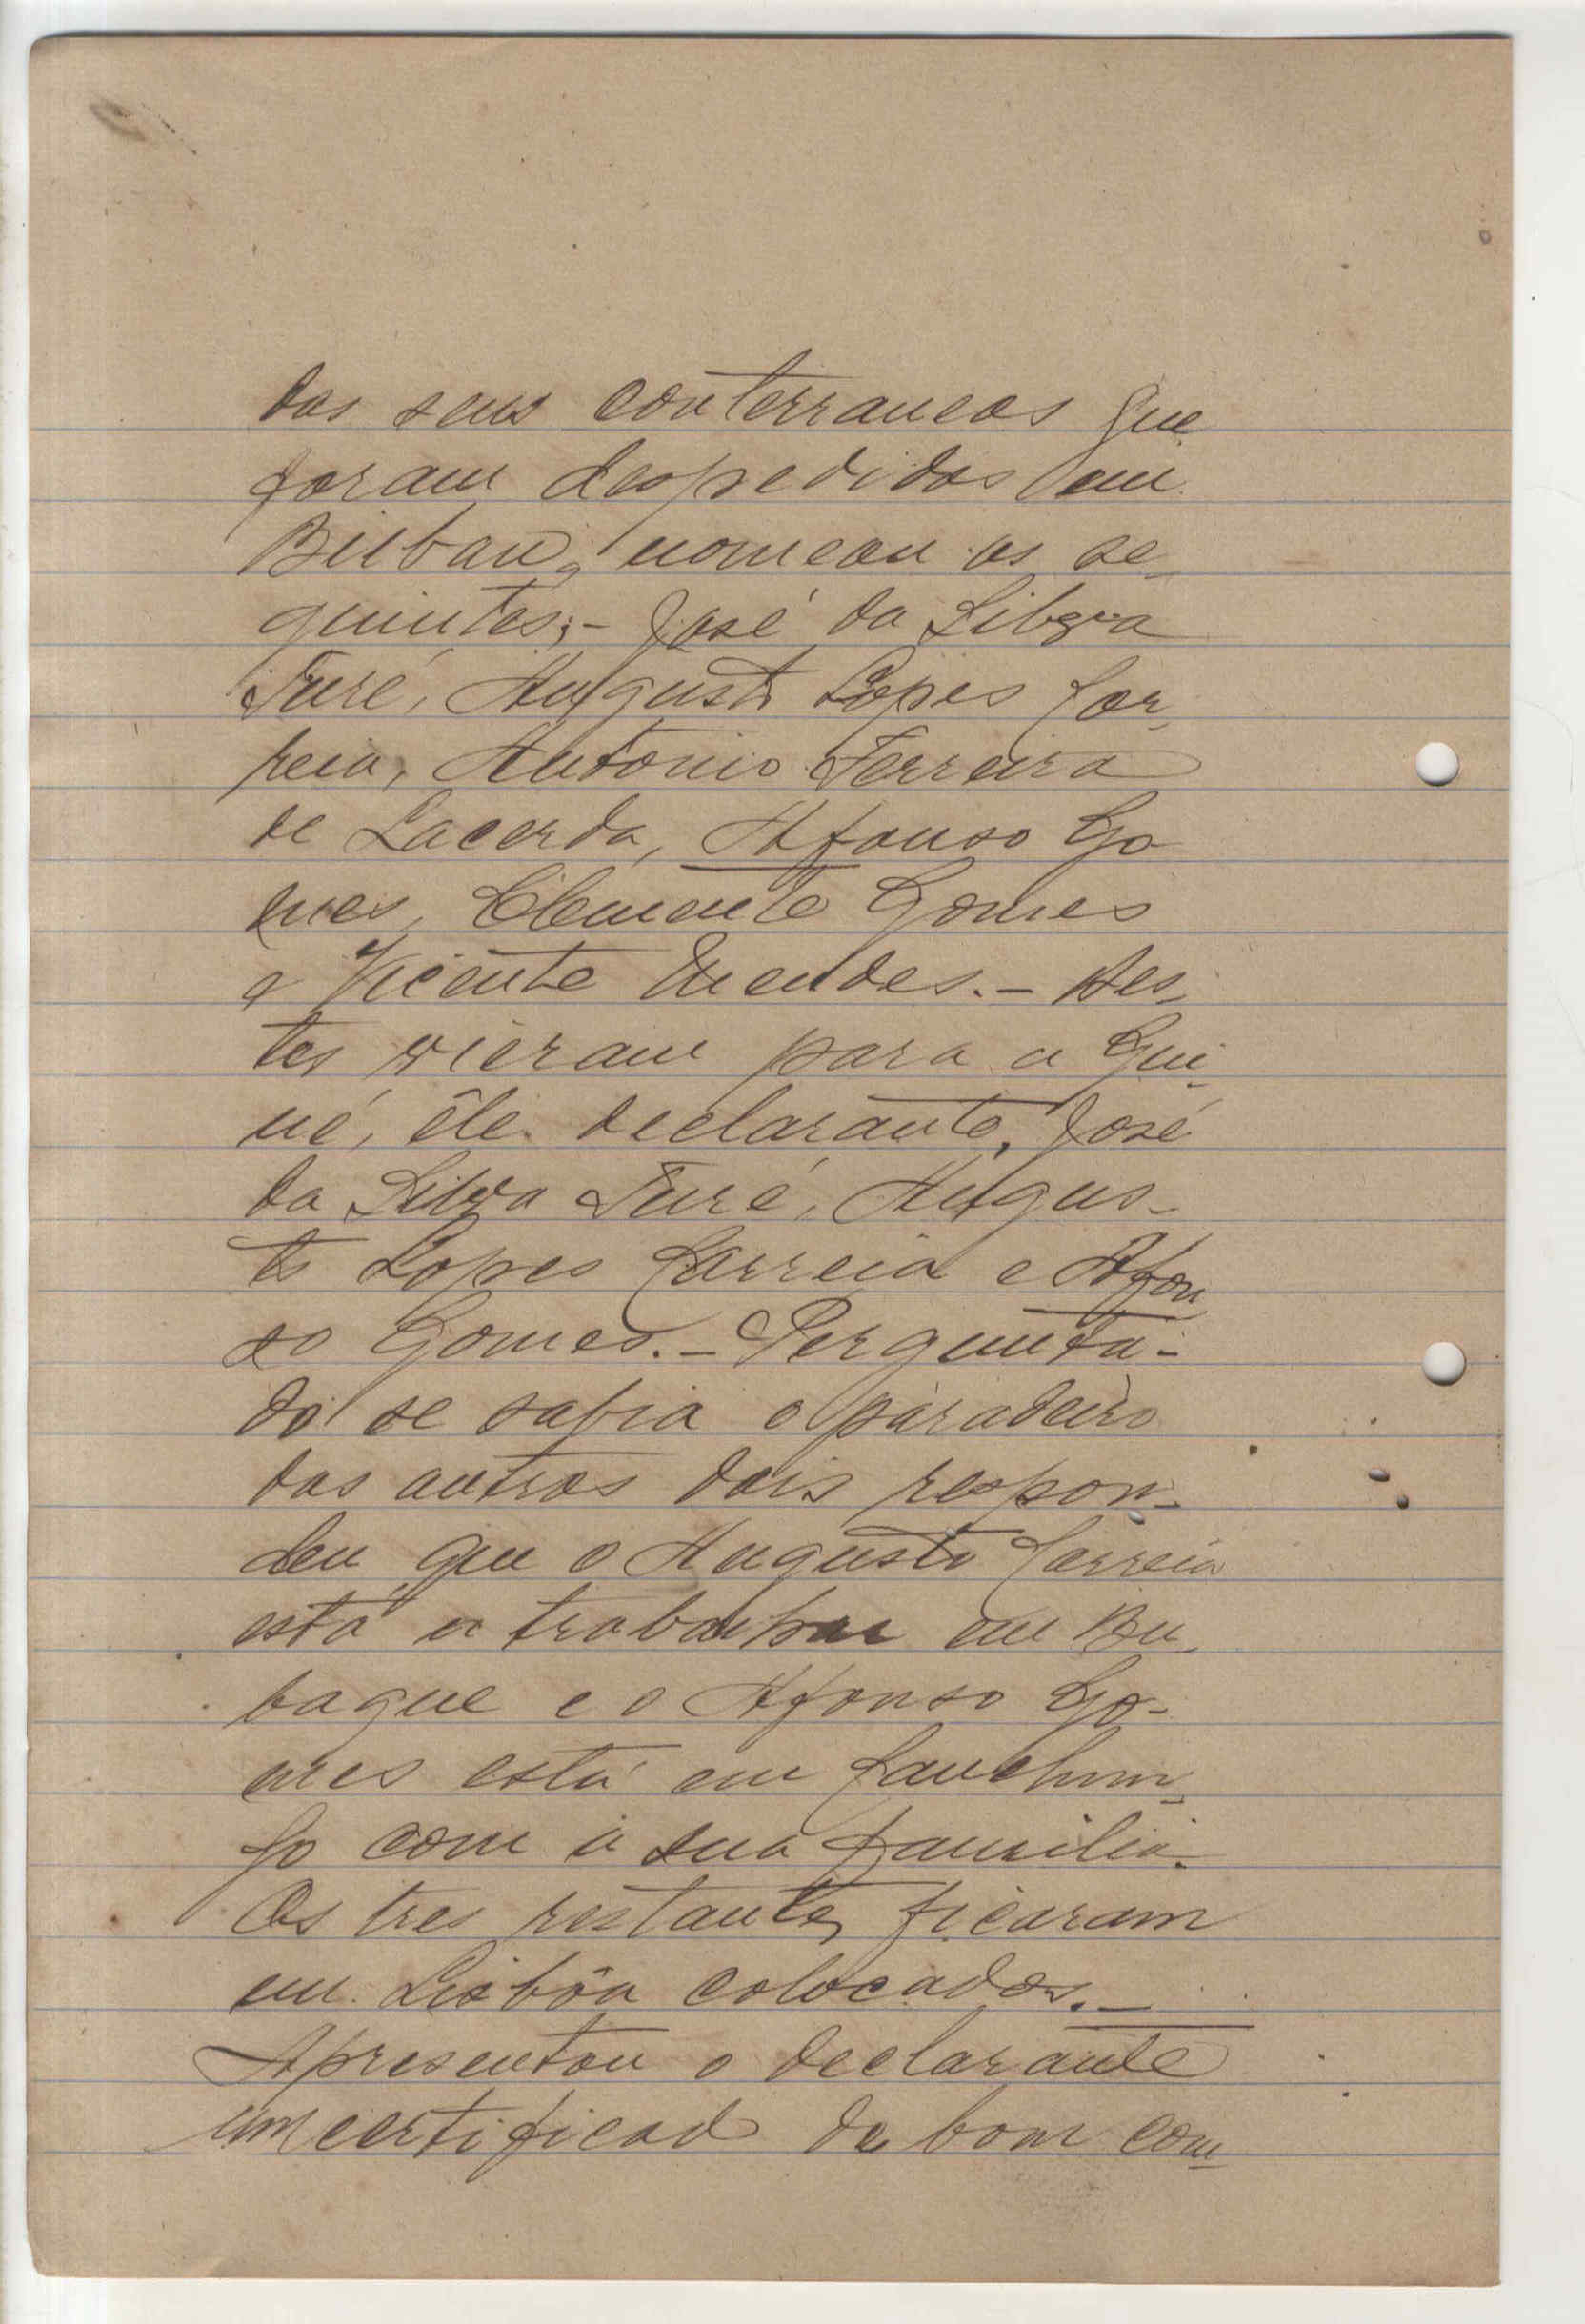 dos seus conterraneos que
foram despedidos em
Bilbau, nomeou os se-
guintes;- José da Silva
Turé, Augusto Lopes Cor-
reia, António Ferreira
de Lacerda, Afonso Go
mes, Clemente Gomes
e Vicente Mendes.- Des-
tes vieram para a Gui-
né, êle declarante, José
da Silva Turé, Augus-
to Lopes Correia e Afon
so Gomes.- Pergunta-
do se sabia o paradeiro
dos outros dois respon-
deu que o Augusto Correia
está a trabalhar em Bu-
baque e o Afonso Go-
mes está em Canchun-
go com a sua familia.
Os tres restantes ficaram
em Lisbôa colocados.-
Apresentou o declarante
um certificad de bom com